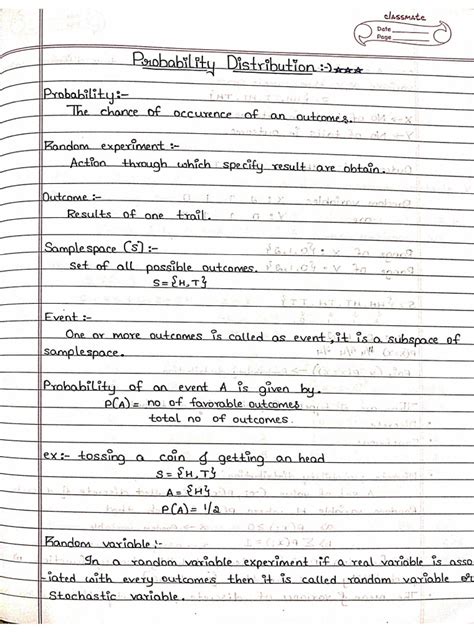 classmate
Date
Page
Probability Distribution :-) ***
Probability:-
The chance of occurence of an outcomes.
Random experiment :-
Action through which specify result are obtain.
Outcome :-
Results of one trail.
Samplespace (S):-
set of all possible outcomes.
S={H,T}
Event :-
One or more outcomes is called as event, it is a subspace of
samplespace.
Probability of an event A is given by.
P(A)= no of favorable outcomes
total no of outcomes.
ex:- tossing a coin & getting an head
S={H,T}
A={H}
P(A)= 1/2
Random variable:-
In a random variable experiment if a real variable is asso
-iated with every outcomes then it is called random variable or
Stochastic variable.